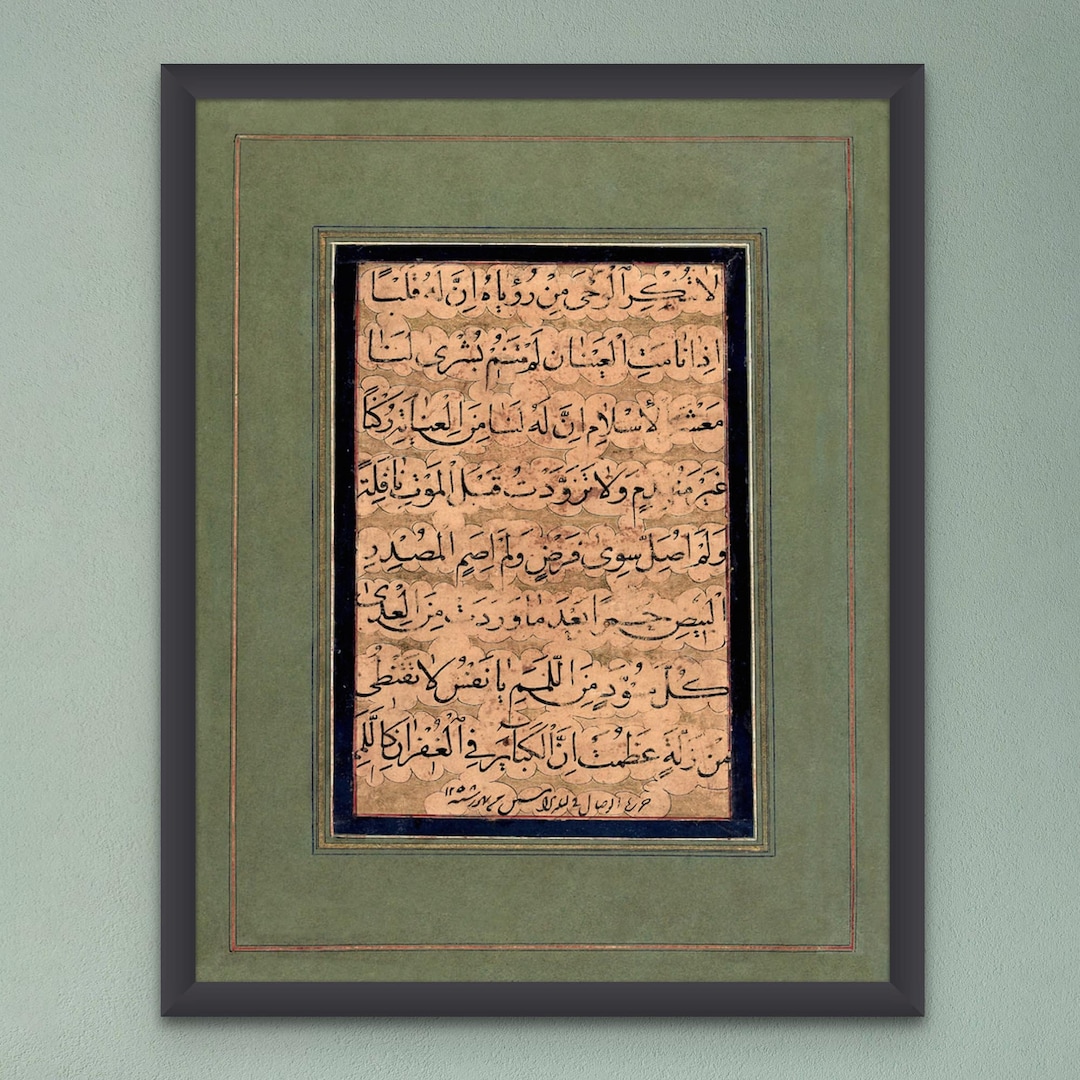 لَا تُنْكِرِ الْوَحْيَ مِنْ رُؤْيَاهُ اِنَّ لَهُ قَلْبًا
اِذَا نَامَتِ الْعَيْنَانِ لَمْ يَنَمْ بُشْرٰى لَنَا
مَعْشَرَ الْأِسْلَامِ اِنَّ لَهُ لَنَا مِنَ الْعِنَايَةِ رُكْنًا
غَيْرَ مُنْهَدِمٍ وَلَا تَزَوَّدْتُ قَبْلَ الْمَوْتِ نَافِلَةً
وَلَمْ اُصَلِّ سِوٰى فَرْضٍ وَلَمْ اَصُمِ الْمُصْدِرِ
الْبِيضِ حُمْرًا بَعْدَ مَا وَرَدَتْ مِنَ الْعِدٰى
كُلَّ مُسْوَدٍّ مِنَ اللِّمَمِ يَا نَفْسُ لَا تَقْنَطِي
مِنْ زَلَّةٍ عَظُمَتْ اِنَّ الْكَبَآئِرَ فِي الْغُفْرَانِ كَاللَّمَمِ